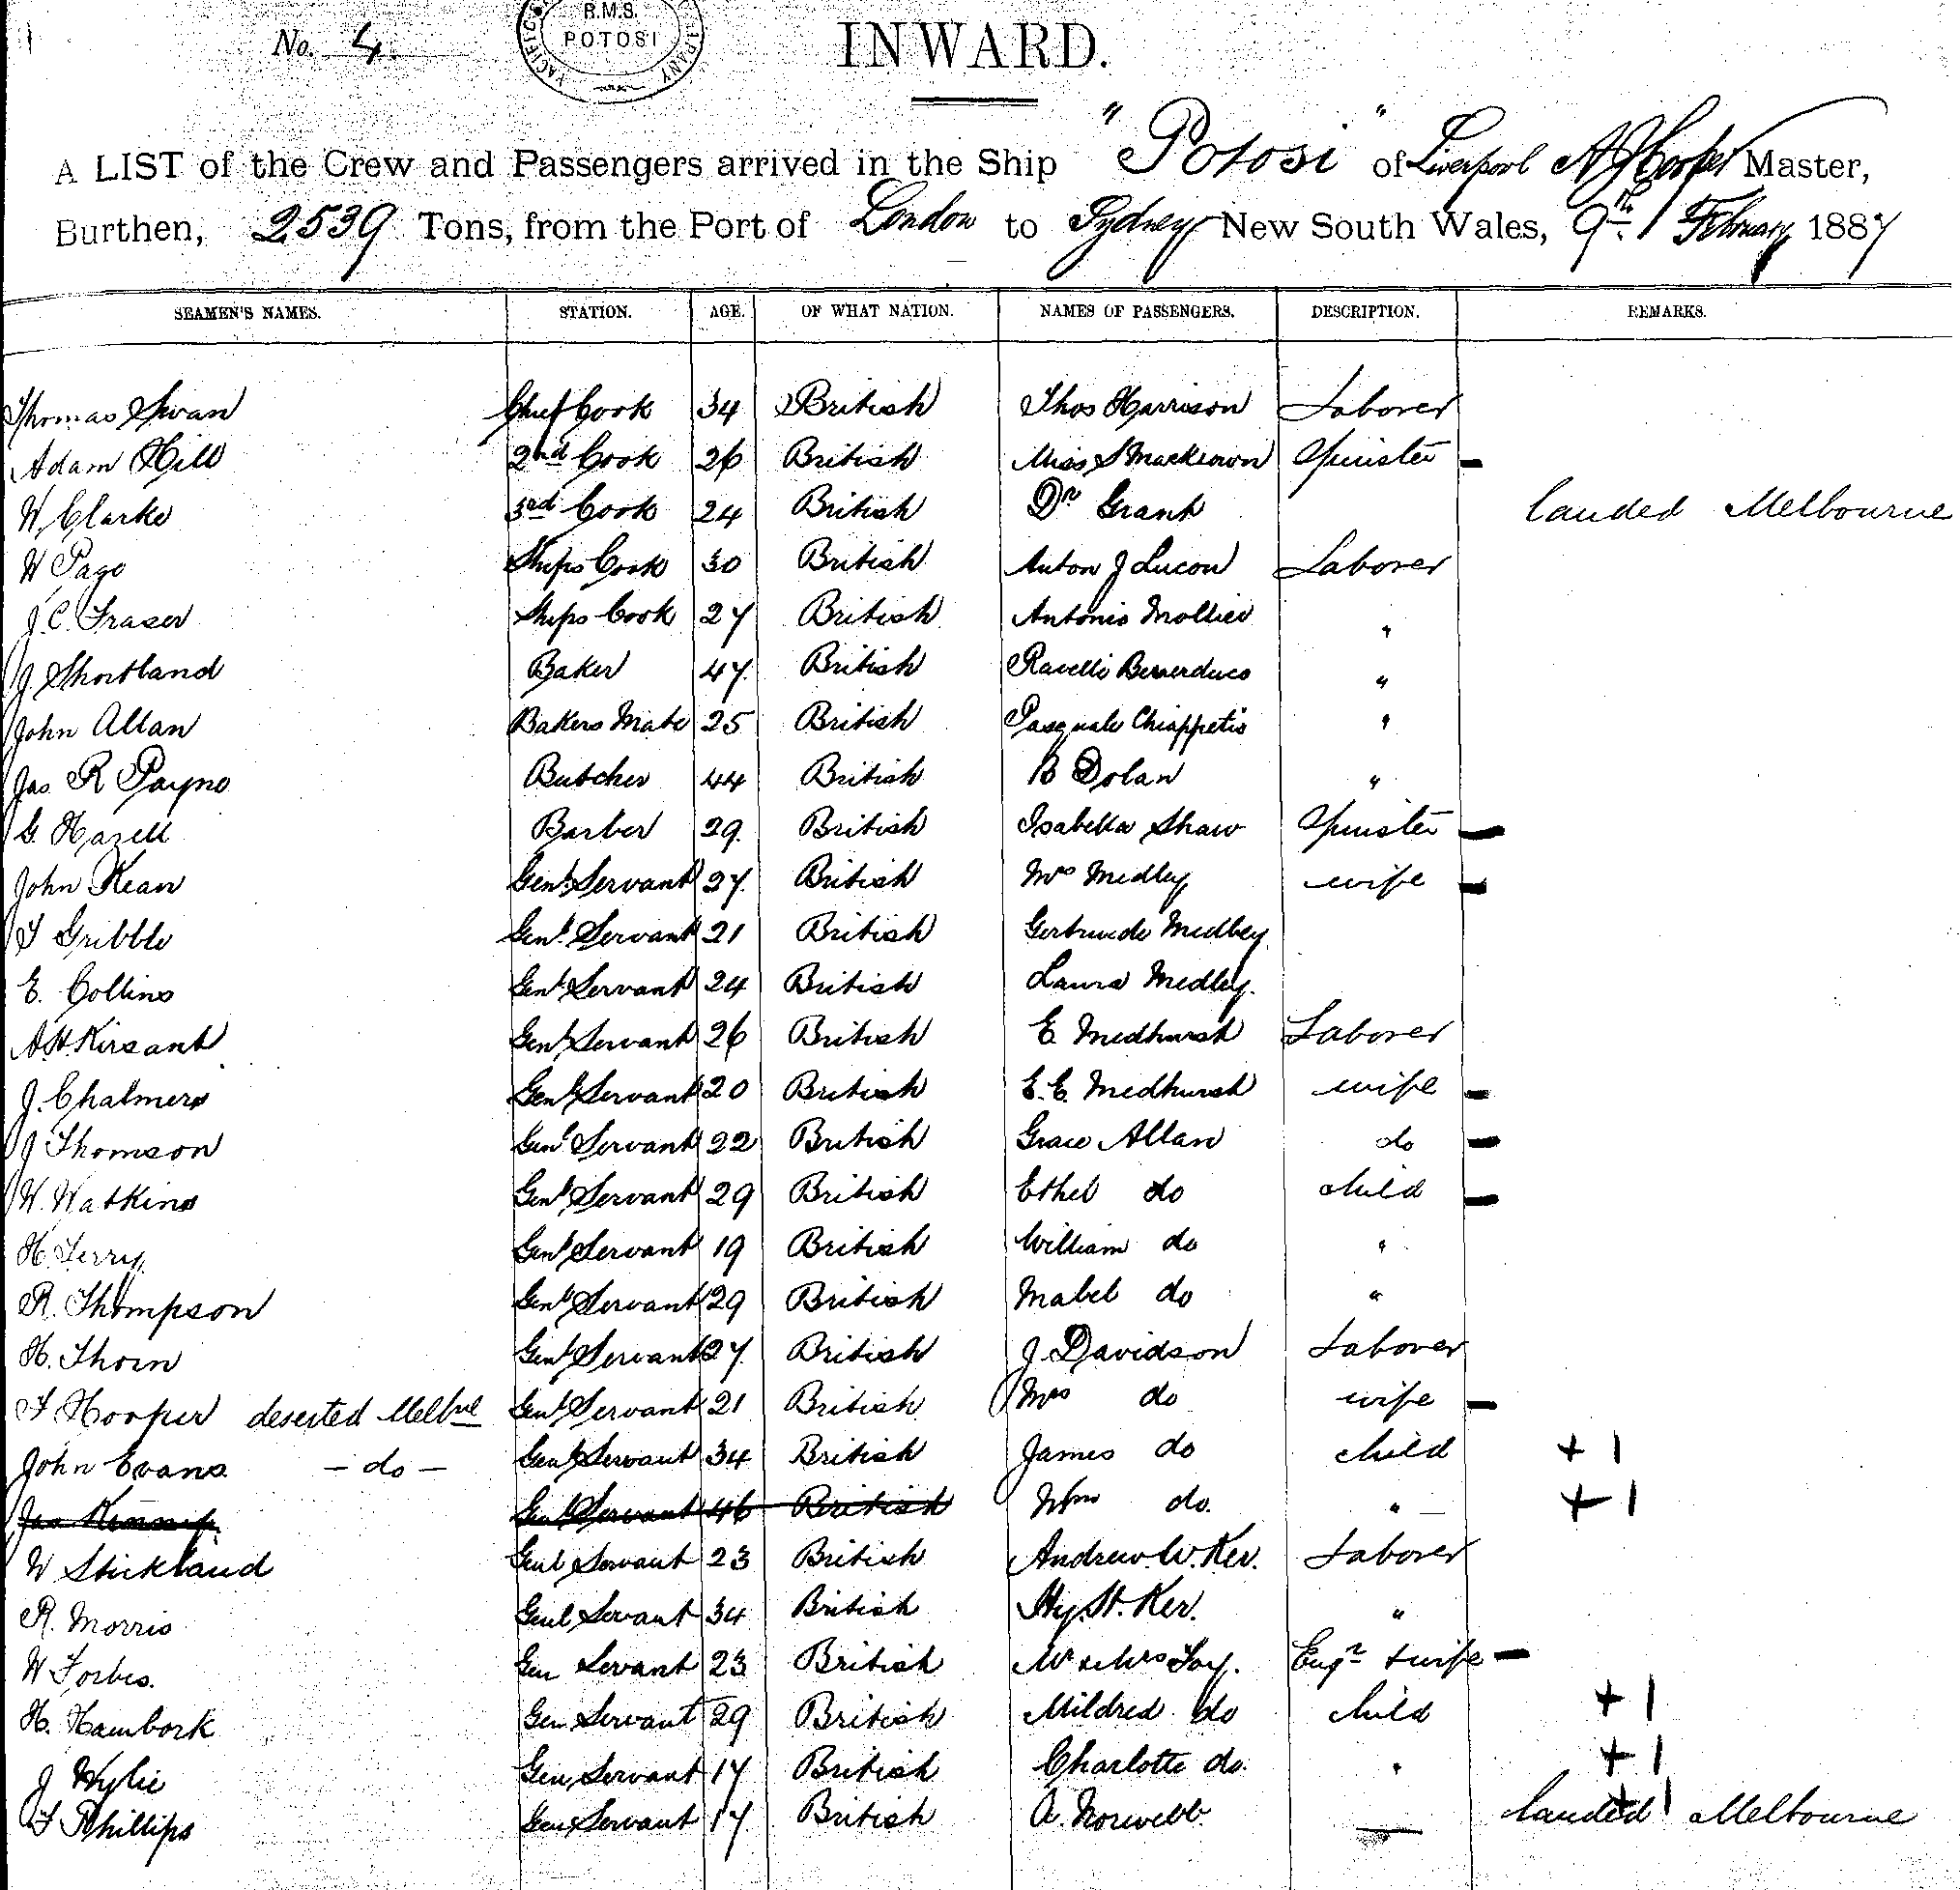 No. 4.
R.M.S.
POTOSI
PACIFIC
INWARD.
A LIST of the Crew and Passengers arrived in the Ship "Potosi" of Liverpool A J Cooper Master,
Burthen, 2539 Tons, from the Port of London to Sydney New South Wales, 9th February 1887
SEAMEN'S NAMES. STATION. AGE. OF WHAT NATION. NAMES OF PASSENGERS. DESCRIPTION. REMARKS.
Thomas Swan Chief Cook 34 British Thos Harrison Laborer
Adam Hill 2nd Cook 26 British Miss S Spinster
W Clarke 3rd Cook 24 British Dr Grant landed Melbourne
W Page Ships Cook 30 British Anton J Lucou Laborer
J. C. Fraser Ships Cook 27 British Antonio "
J Shortland Baker 47 British Ravelli "
John Allan Bakers Mate 25 British Pasquale "
Jas R Payne Butcher 44 British B Dolan "
G. Hazell Barber 29 British Isabella Shaw Spinster
John Kean Genl. Servant 27 British Mrs Medley wife
Gribble Genl. Servant 21 British Gertrude Medley
E. Collins Genl Servant 24 British Laura Medley.
A.H. Kirsant Genl Servant 26 British E. Medhurst Laborer
J. Chalmers Genl Servant 20 British E. E. Medhurst wife
J Thomson Genl Servant 22 British Grace Allan do
W. Watkins Genl Servant 29 British Ethel do child
H. Terry Genl Servant 19 British William do "
R. Thompson Genl Servant 29 British Mabel do "
H. Thorn Genl Servant 27 British J. Davidson Laborer
Hooper deserted Melbne Genl Servant 21 British Mrs do wife
John Evans - do - Genl Servant 34 British James do child + 1
Genl Servant 46 British Wm do. " + 1
W Stickland Genl Servant 23 British Andrew W. Ker. Laborer
R. Morris Genl Servant 34 British Hy. St. Ker. "
W Forbes. Gen Servant 23 British Mr & Mrs Foy. Engr & wife
H. Hambork Gen Servant 29 British Mildred do child + 1
J Wylie Gen Servant 17 British Charlotte do. " + 1
Phillips Gen Servant 17 British A. Norwebb — landed Melbourne